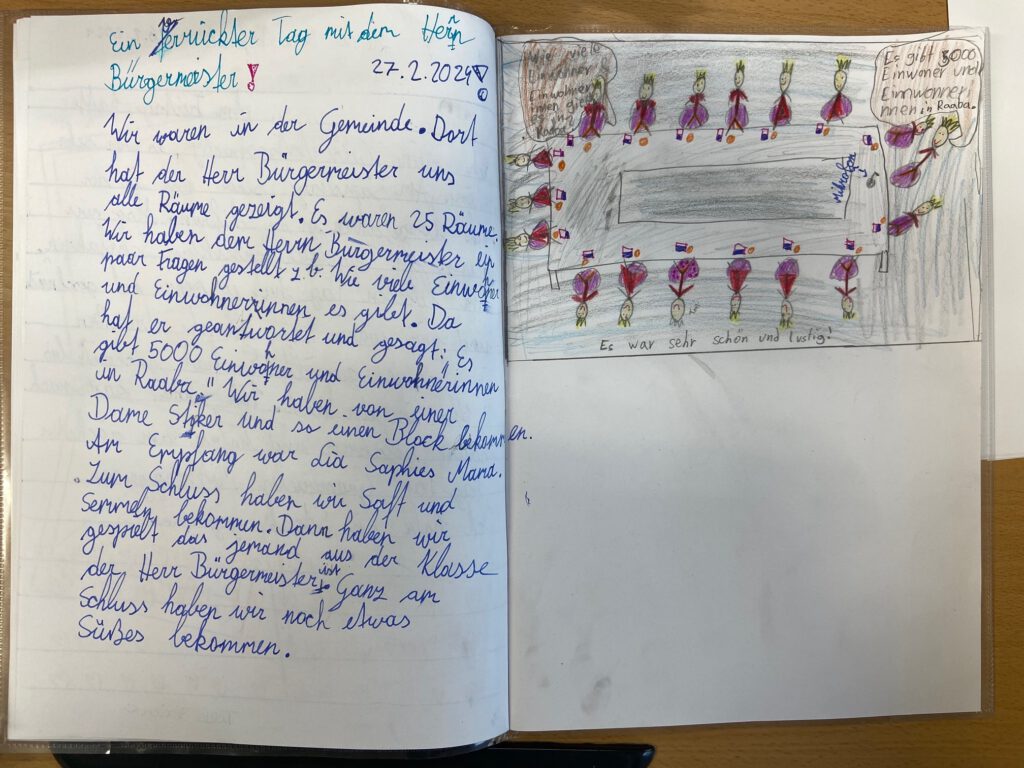 Ein verrückter Tag mit dem Herrn
Bürgermeister!
27.2.2024
Wir waren in der Gemeinde. Dort
hat der Herr Bürgermeister uns
alle Räume gezeigt. Es waren 25 Räume.
Wir haben dem Herrn Bürgermeister ein
paar Fragen gestellt z.b: Wie viele Einwohner
und Einwohnerinnen es gibt. Da
hat er geantwortet und gesagt: Es
gibt 5000 Einwohner und Einwohnerinnen
in Raaba." Wir haben von einer
Dame Stiker und so einen Block bekommen.
Am Empfang war Lia Saphies Mama.
Zum Schluss haben wir Saft und
Semmeln bekommen. Dann haben wir
gespielt das jemand aus der Klasse
der Herr Bürgermeister ist. Ganz am
Schluss haben wir noch etwas
Süßes bekommen.
Wie viele
Einwohner
Einwohneri
nnen gibt
es in
Raaba
Es gibt 3000
Einwoner und
Einwonneri
nnen in Raaba.
Mikrofon
Es war sehr schön und lustig!